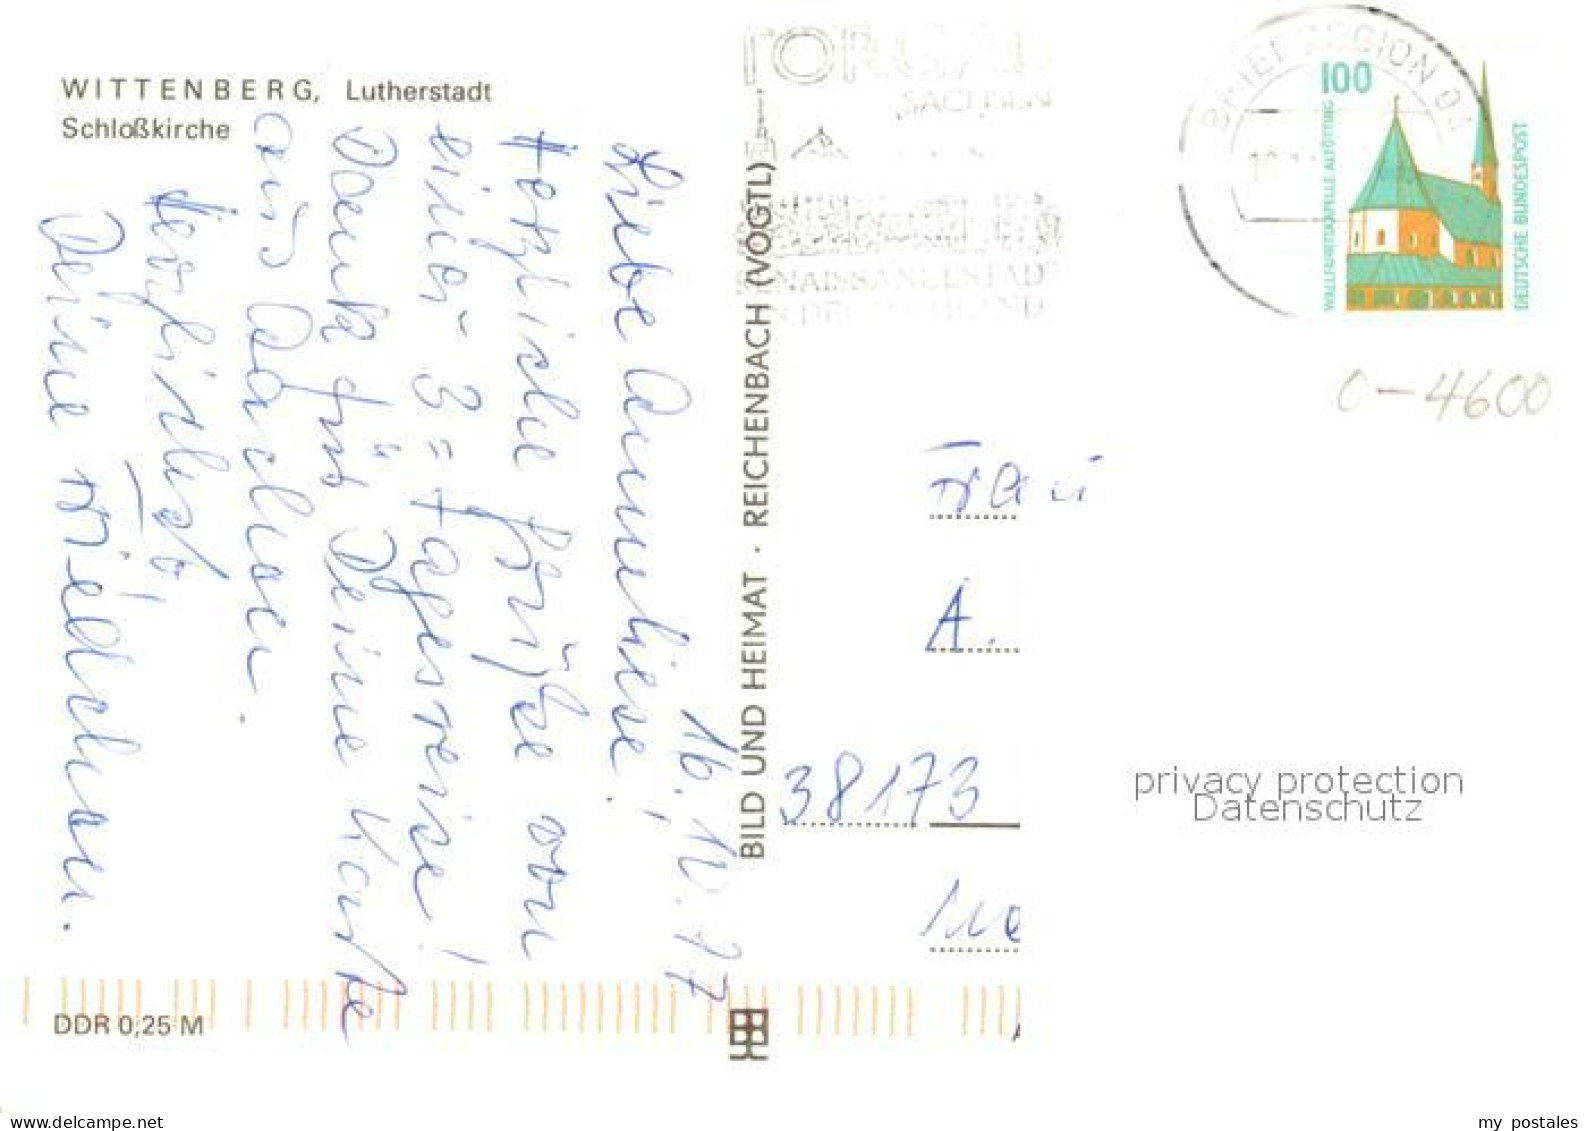 WITTENBERG, Lutherstadt
Schloßkirche
16. IV. 97
Liebe Anneliese!
Herzliche Grüße von
einer 3 = Tagesreise!
Dank für Deine Karte
aus Aachen.
Herzlichst
Deine Friedchen.
DDR 0,25 M
BILD UND HEIMAT · REICHENBACH (VOGTL)
TORGAU
SACHSEN
RENAISSANCESTADT
BRIEFREGION 04
100
WALLFAHRTSKAPELLE ALTÖTTING
DEUTSCHE BUNDESPOST
0-4600
Frau
A.
38173
privacy protection
Datenschutz
www.delcampe.net
my_postales